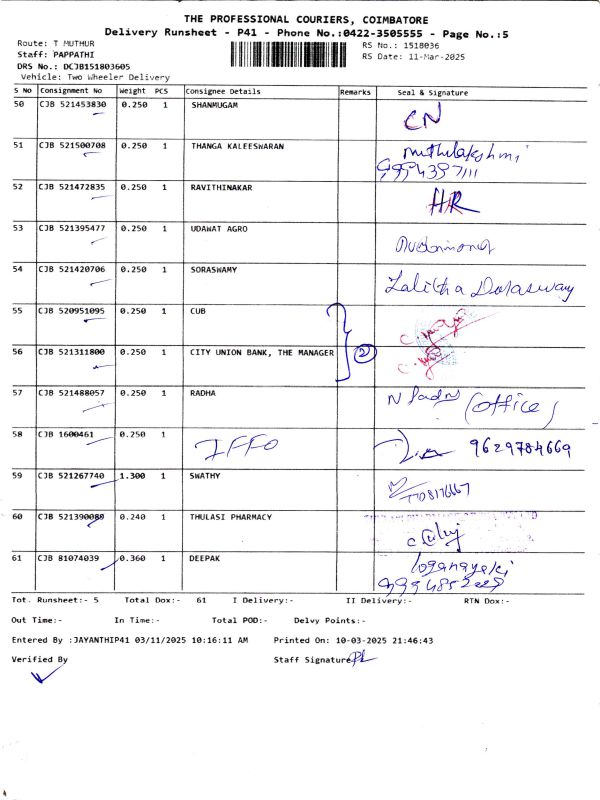 THE PROFESSIONAL COURIERS, COIMBATORE
Delivery Runsheet - P41 - Phone No.:0422-3505555 - Page No.:5
Route: T MUTHUR
RS No.: 1518036
Staff: PAPPATHI
RS Date: 11-Mar-2025
DRS No.: DCJB151803605
Vehicle: Two Wheeler Delivery
S No Consignment No Weight PCS Consignee Details Remarks Seal & Signature
50 CJB 521453830 0.250 1 SHANMUGAM CN
51 CJB 521500708 0.250 1 THANGA KALEESWARAN Muthulakshmi
9994397111
52 CJB 521472835 0.250 1 RAVITHINAKAR HR
53 CJB 521395477 0.250 1 UDAWAT AGRO
54 CJB 521420706 0.250 1 SORASWAMY Lalitha Doraswamy
55 CJB 520951095 0.250 1 CUB
56 CJB 521311800 0.250 1 CITY UNION BANK, THE MANAGER 2
57 CJB 521488057 0.250 1 RADHA (office)
58 CJB 1600461 0.250 1 IFFO 9629784669
59 CJB 521267740 1.300 1 SWATHY
7708176667
60 CJB 521390089 0.240 1 THULASI PHARMACY
61 CJB 81074039 0.360 1 DEEPAK loganayaki
Tot. Runsheet:- 5 Total Dox:- 61 I Delivery:- II Delivery:- RTN Dox:-
Out Time:- In Time:- Total POD:- Delvy Points:-
Entered By :JAYANTHIP41 03/11/2025 10:16:11 AM Printed On: 10-03-2025 21:46:43
Verified By Staff Signature